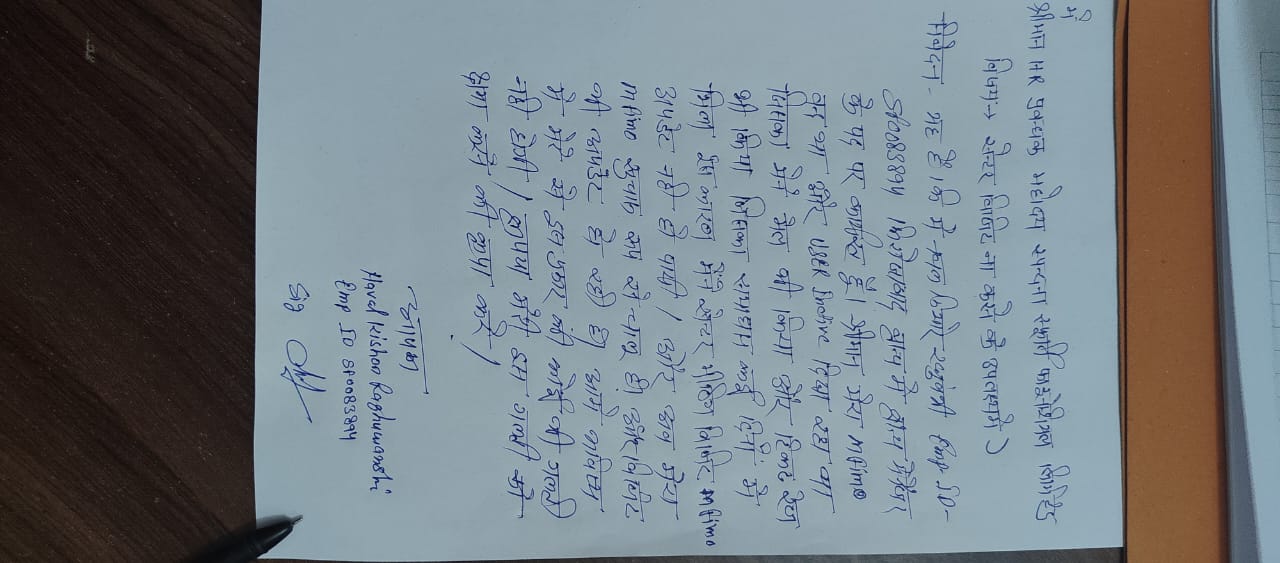 में
श्रीमान HR प्रबन्धक महोदय स्पन्दना स्फूर्ति फाइनेंशियल लिमिटेड
विषय → सेन्टर विजिट ना करने के सम्बन्ध में)
निवेदन - यह है कि मैं नवल किशोर रघुवंशी Emp ID -
S100883894 ब्रांच में ब्रांच मैनेजर
के पद पर कार्यरत हूँ। श्रीमान मेरा mfimo
बन्द था और USER Inactive दिखा रहा था
जिसका मैंने मेल भी किया और टिकट रेज
भी किया जिसका समाधान नहीं
मिला इस कारण मेरे सेन्टर मीटिंग विजिट mfimo
अपडेट नहीं हो पायी। और अब मेरा
mfimo सुचारू रूप से चालू है और विजिट
भी अपडेट हो रही है। आगे भविष्य
में मेरे से इस प्रकार की कोई भी गलती
नहीं होगी। कृपया मेरी इस गलती को
क्षमा करने की कृपा करें।
Naval Kishor Raghuwanshi
Emp ID S100883894
Sig